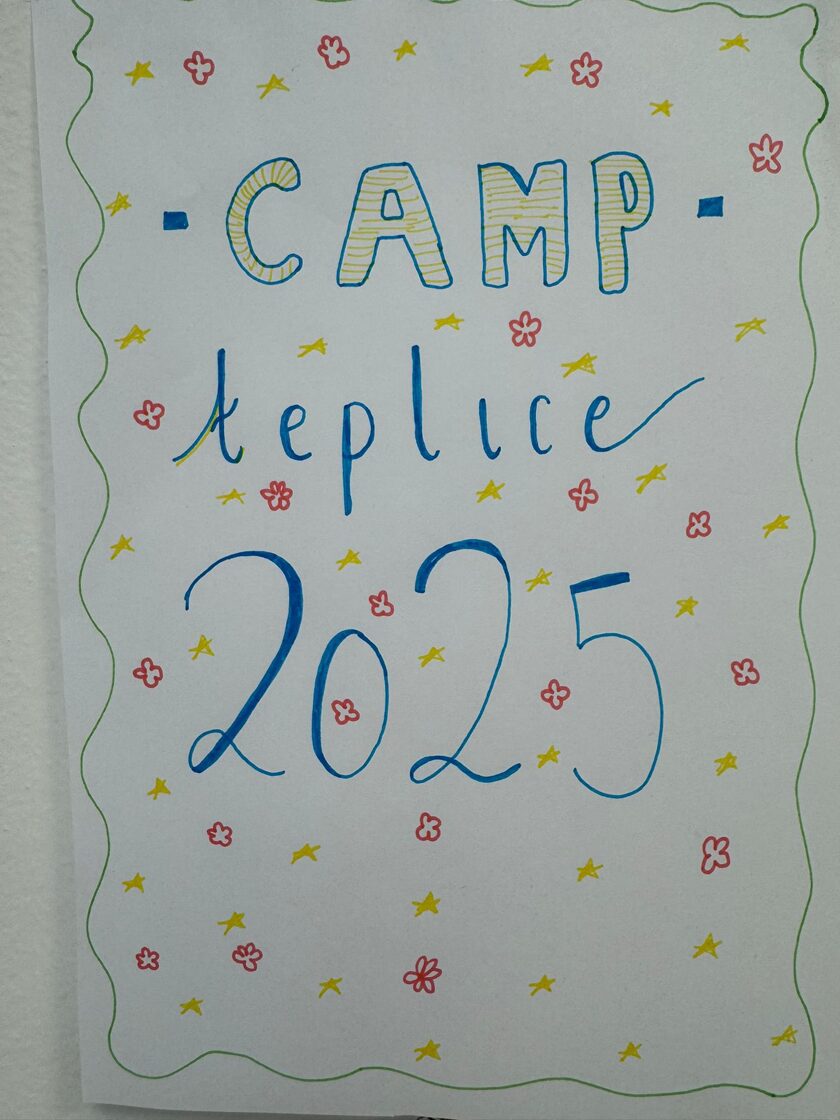 - CAMP -
teplice
2025